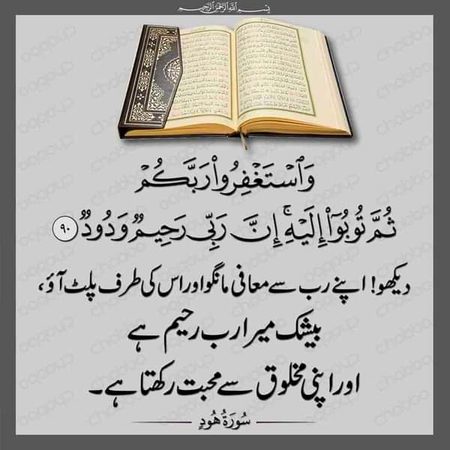 بِسْمِ اللهِ الرَّحْمٰنِ الرَّحِيْمِ
وَٱسْتَغْفِرُوا۟ رَبَّكُمْ
ثُمَّ تُوبُوٓا۟ إِلَيْهِ ۚ إِنَّ رَبِّى رَحِيمٌ وَدُودٌ ۝٩٠
دیکھو! اپنے رب سے معافی مانگو اور اس کی طرف پلٹ آؤ،
بیشک میرا رب رحیم ہے
اور اپنی مخلوق سے محبت رکھتا ہے۔
سُورَةُ هُودٍ